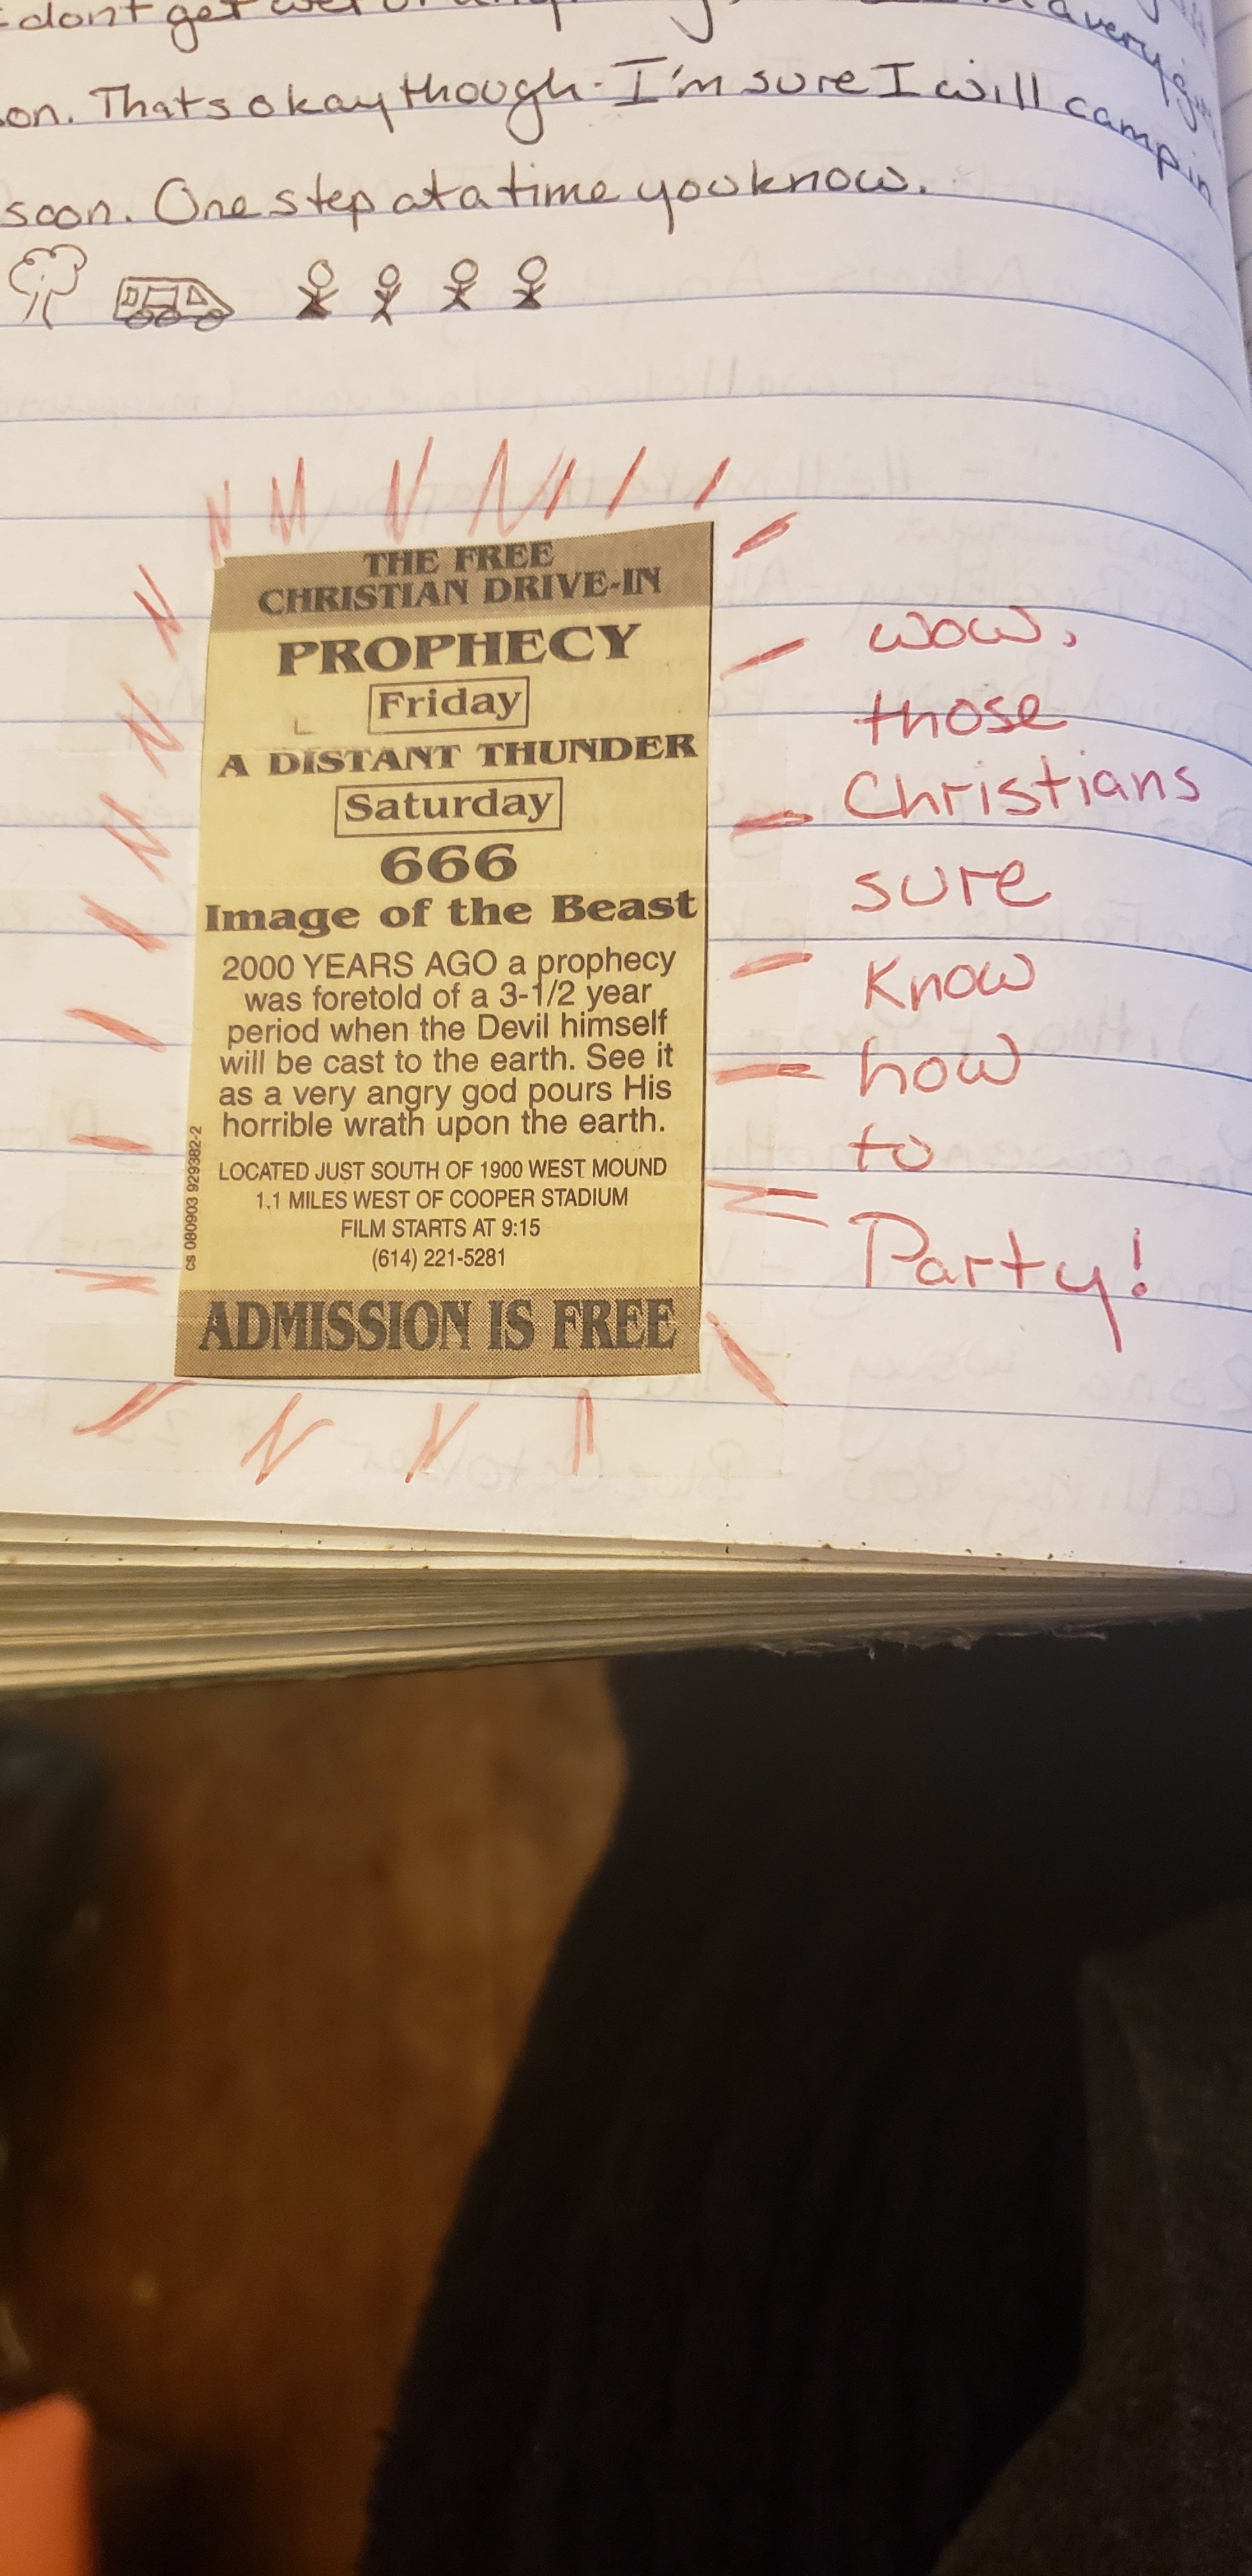 dont get wet or
a very
on. Thats okay though. I'm sure I will camp in
soon. One step at a time you know.
THE FREE
CHRISTIAN DRIVE-IN
PROPHECY
Friday
A DISTANT THUNDER
Saturday
666
Image of the Beast
2000 YEARS AGO a prophecy
was foretold of a 3-1/2 year
period when the Devil himself
will be cast to the earth. See it
as a very angry god pours His
horrible wrath upon the earth.
LOCATED JUST SOUTH OF 1900 WEST MOUND
1.1 MILES WEST OF COOPER STADIUM
FILM STARTS AT 9:15
(614) 221-5281
ADMISSION IS FREE
cs 080903 929382-2
wow,
those
Christians
sure
know
how
to
Party!